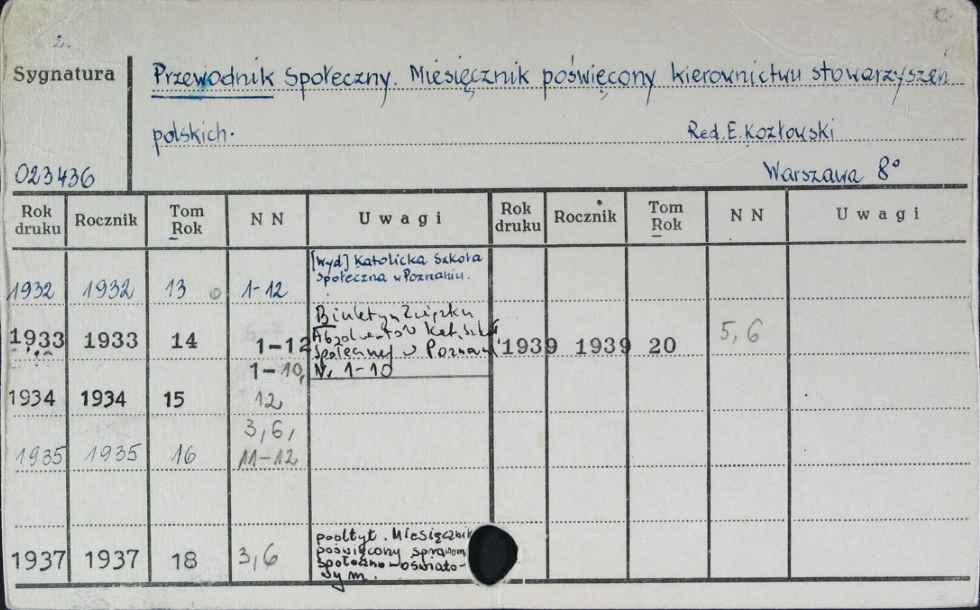 2.
Sygnatura
Przewodnik Społeczny. Miesięcznik poświęcony kierownictwu stowarzyszeń
polskich.
Red. E. Kozłowski
023436
Warszawa 8°
Rok druku Rocznik Tom Rok NN Uwagi Rok druku Rocznik Tom Rok NN Uwagi
[Wyd] Katolicka Szkoła
Społeczna w Poznaniu.
1932 1932 13 1-12
Biuletyn Związku
Absolwentów Kat. Szkoły
Społecznej w Poznaniu
Nr 1-10
1933 1933 14 1-12
1939 1939 20 5,6
1-10,
1934 1934 15 12
3,6,
1935 1935 16 11-12
podtyt. Miesięcznik
poświęcony sprawom
społeczno-oświato-
wym.
1937 1937 18 3,6